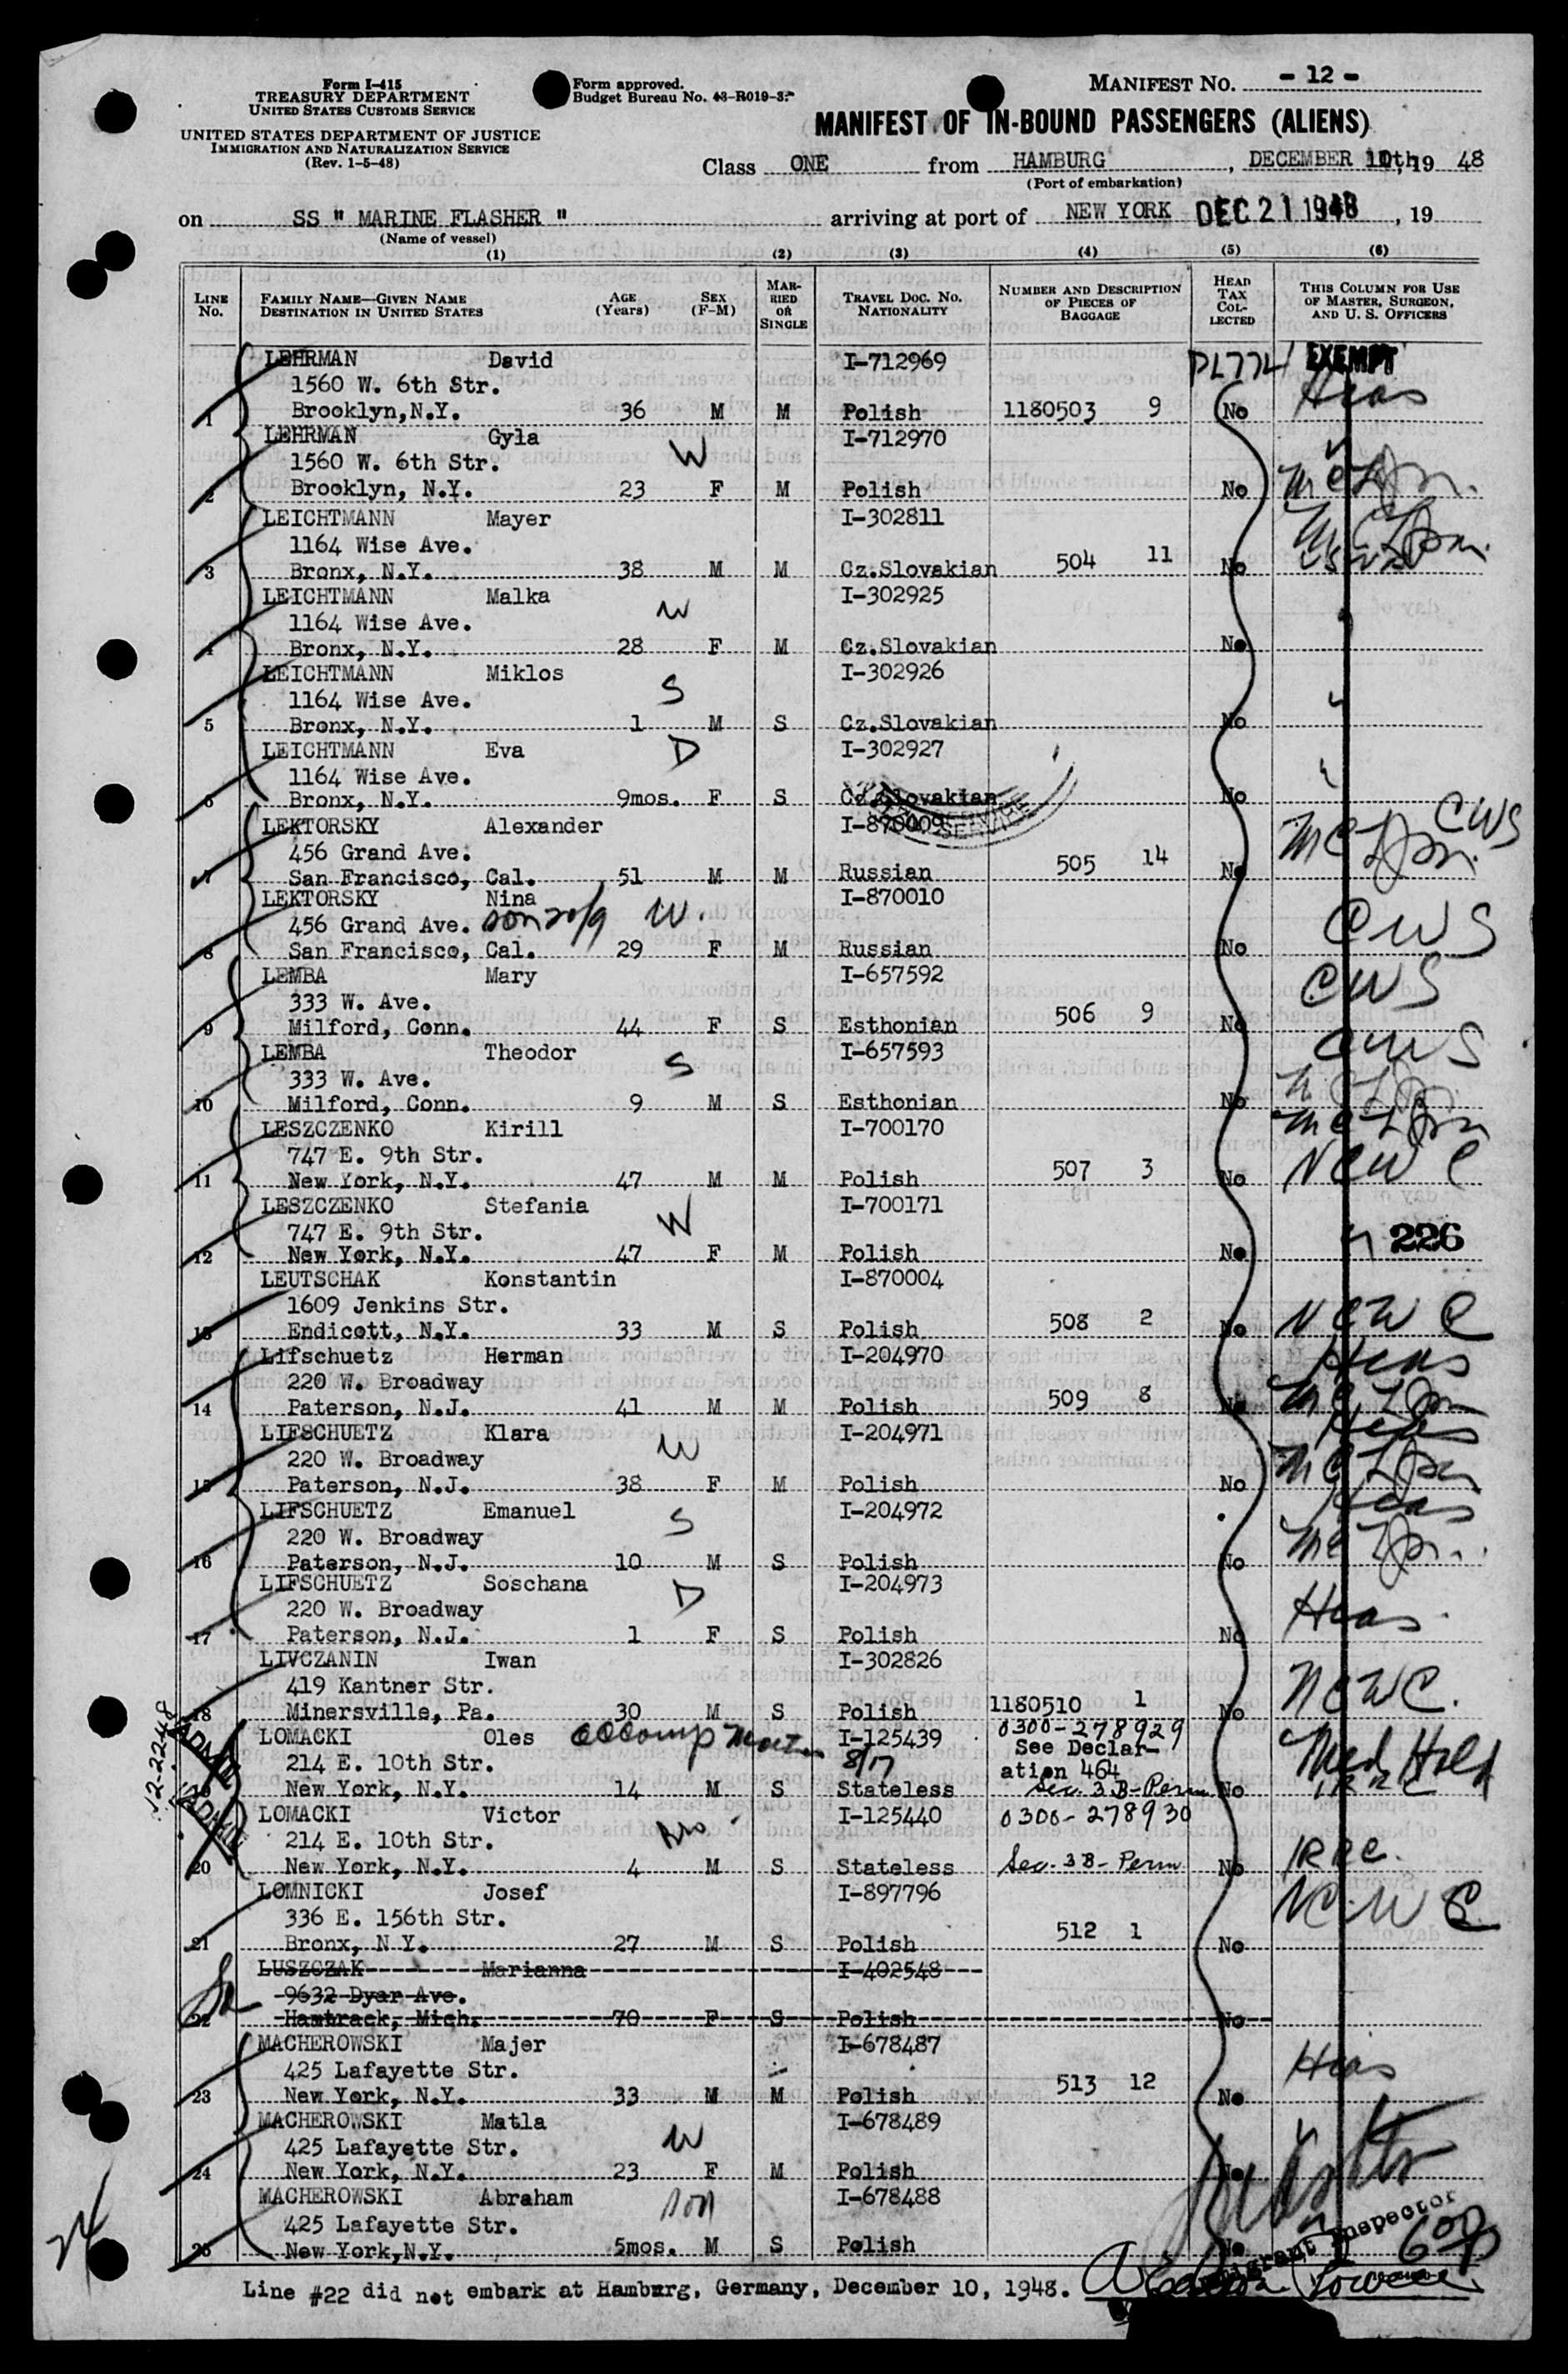 Form I-415
TREASURY DEPARTMENT
UNITED STATES CUSTOMS SERVICE
UNITED STATES DEPARTMENT OF JUSTICE
IMMIGRATION AND NATURALIZATION SERVICE
(Rev. 1-5-48)
Form approved.
Budget Bureau No. 43-R019-3.
MANIFEST NO. - 12 -
MANIFEST OF IN-BOUND PASSENGERS (ALIENS)
Class ONE from HAMBURG, DECEMBER 10th, 19 48
(Port of embarkation)
on SS " MARINE FLASHER " arriving at port of NEW YORK DEC 21 1948, 19
(Name of vessel)
(1) (2) (3) (4) (5) (6)
LINE No. FAMILY NAME—GIVEN NAME DESTINATION IN UNITED STATES AGE (Years) SEX (F-M) MARRIED OR SINGLE TRAVEL DOC. NO. NATIONALITY NUMBER AND DESCRIPTION OF PIECES OF BAGGAGE HEAD TAX COLLECTED THIS COLUMN FOR USE OF MASTER, SURGEON, AND U. S. OFFICERS
LEHRMAN David I-712969 PL774 EXEMPT
1560 W. 6th Str. Hias
1 Brooklyn,N.Y. 36 M M Polish 1180503 9 No
LEHRMAN Gyla I-712970
1560 W. 6th Str. W
2 Brooklyn, N.Y. 23 F M Polish No
LEICHTMANN Mayer I-302811
1164 Wise Ave.
3 Bronx, N.Y. 38 M M Cz.Slovakian 504 11 No
LEICHTMANN Malka I-302925
1164 Wise Ave. W
4 Bronx, N.Y. 28 F M Cz.Slovakian No
LEICHTMANN Miklos I-302926
1164 Wise Ave. S
5 Bronx, N.Y. 1 M S Cz.Slovakian No
LEICHTMANN Eva D I-302927
1164 Wise Ave.
6 Bronx, N.Y. 9mos. F S Cz.Slovakian No
SERVICE
LEKTORSKY Alexander I-870009 CWS
456 Grand Ave.
7 San Francisco, Cal. 51 M M Russian 505 14 No
LEKTORSKY Nina I-870010
456 Grand Ave. W. CWS
8 San Francisco, Cal. 29 F M Russian No
LEMBA Mary I-657592 CWS
333 W. Ave.
9 Milford, Conn. 44 F S Esthonian 506 9 No
LEMBA Theodor I-657593 CWS
333 W. Ave. S
10 Milford, Conn. 9 M S Esthonian No
LESZCZENKO Kirill I-700170
747 E. 9th Str.
11 New York, N.Y. 47 M M Polish 507 3 No NCWC
LESZCZENKO Stefania I-700171
747 E. 9th Str. W 226
12 New York, N.Y. 47 F M Polish No
LEUTSCHAK Konstantin I-870004
1609 Jenkins Str.
13 Endicott, N.Y. 33 M S Polish 508 2 No NCWC
Lifschuetz Herman I-204970 Hias
220 W. Broadway
14 Paterson, N.J. 41 M M Polish 509 8 No
LIFSCHUETZ Klara I-204971 Hias
220 W. Broadway W
15 Paterson, N.J. 38 F M Polish No
LIFSCHUETZ Emanuel I-204972 Hias
220 W. Broadway S
16 Paterson, N.J. 10 M S Polish No
LIFSCHUETZ Soschana I-204973
220 W. Broadway D Hias
17 Paterson, N.J. 1 F S Polish No
LIVCZANIN Iwan I-302826
419 Kantner Str. NCWC.
18 Minersville, Pa. 30 M S Polish 1180510 1 No
LOMACKI Oles accomp I-125439 0300-278929
214 E. 10th Str. 8/17 See Declaration 464 Med Hold
19 New York, N.Y. 14 M S Stateless Sec. 3B-Perm No
12-22-48 ADMIT
LOMACKI Victor I-125440 0300-278930
214 E. 10th Str. Bro
20 New York, N.Y. 4 M S Stateless Sec. 3B-Perm No IRRC.
ADMIT
LOMNICKI Josef I-897796 NCWC
336 E. 156th Str.
21 Bronx, N Y. 27 M S Polish 512 1 No
LUSZCZAK Marianna I-402548
9632 Dyar Ave.
22 Hamtrack, Mich. 70 F S Polish No
MACHEROWSKI Majer I-678487
425 Lafayette Str. Hias
23 New York, N.Y. 33 M M Polish 513 12 No
MACHEROWSKI Matla I-678489
425 Lafayette Str. W
24 New York, N.Y. 23 F M Polish No
MACHEROWSKI Abraham son I-678488
425 Lafayette Str.
25 New York,N.Y. 5mos. M S Polish No
Immigrant Inspector
24
Line #22 did not embark at Hamburg, Germany, December 10, 1948.